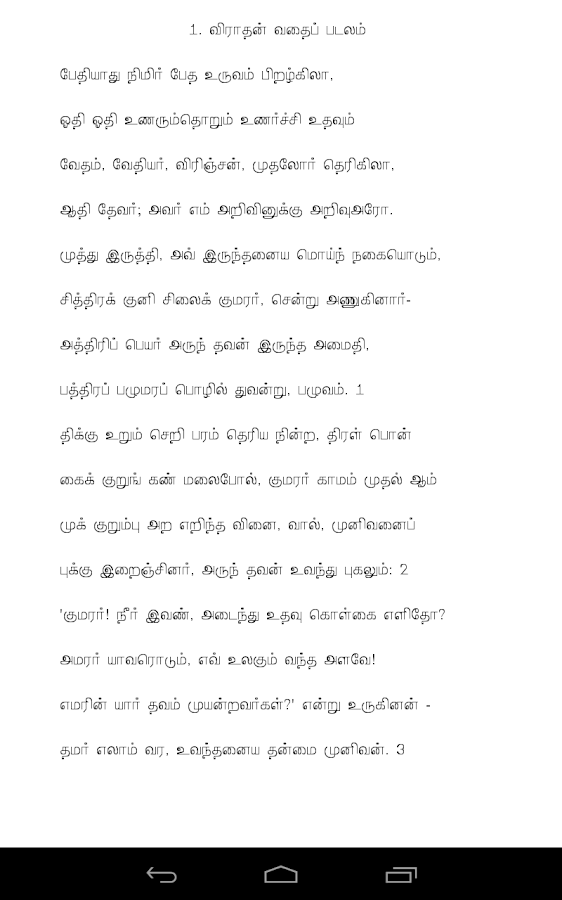 1. விராதன் வதைப் படலம்
பேதியாது நிமிர் பேத உருவம் பிறழ்கிலா,
ஓதி ஓதி உணரும்தொறும் உணர்ச்சி உதவும்
வேதம், வேதியர், விரிஞ்சன், முதலோர் தெரிகிலா,
ஆதி தேவர்; அவர் எம் அறிவினுக்கு அறிவுஅரோ.
முத்து இருத்தி, அவ் இருந்தனைய மொய்ந் நகையொடும்,
சித்திரக் குனி சிலைக் குமரர், சென்று அணுகினார்-
அத்திரிப் பெயர் அருந் தவன் இருந்த அமைதி,
பத்திரப் பழுமரப் பொழில் துவன்று, பழுவம். 1
திக்கு உறும் செறி பரம் தெரிய நின்ற, திரள் பொன்
கைக் குறுங் கண் மலைபோல், குமரர் காமம் முதல் ஆம்
முக் குறும்பு அற எறிந்த வினை, வால், முனிவனைப்
புக்கு இறைஞ்சினர், அருந் தவன் உவந்து புகலும்: 2
'குமரர்! நீர் இவண், அடைந்து உதவு கொள்கை எளிதோ?
அமரர் யாவரொடும், எவ் உலகும் வந்த அளவே!
எமரின் யார் தவம் முயன்றவர்கள்?' என்று உருகினன் -
தமர் எலாம் வர, உவந்தனைய தன்மை முனிவன். 3